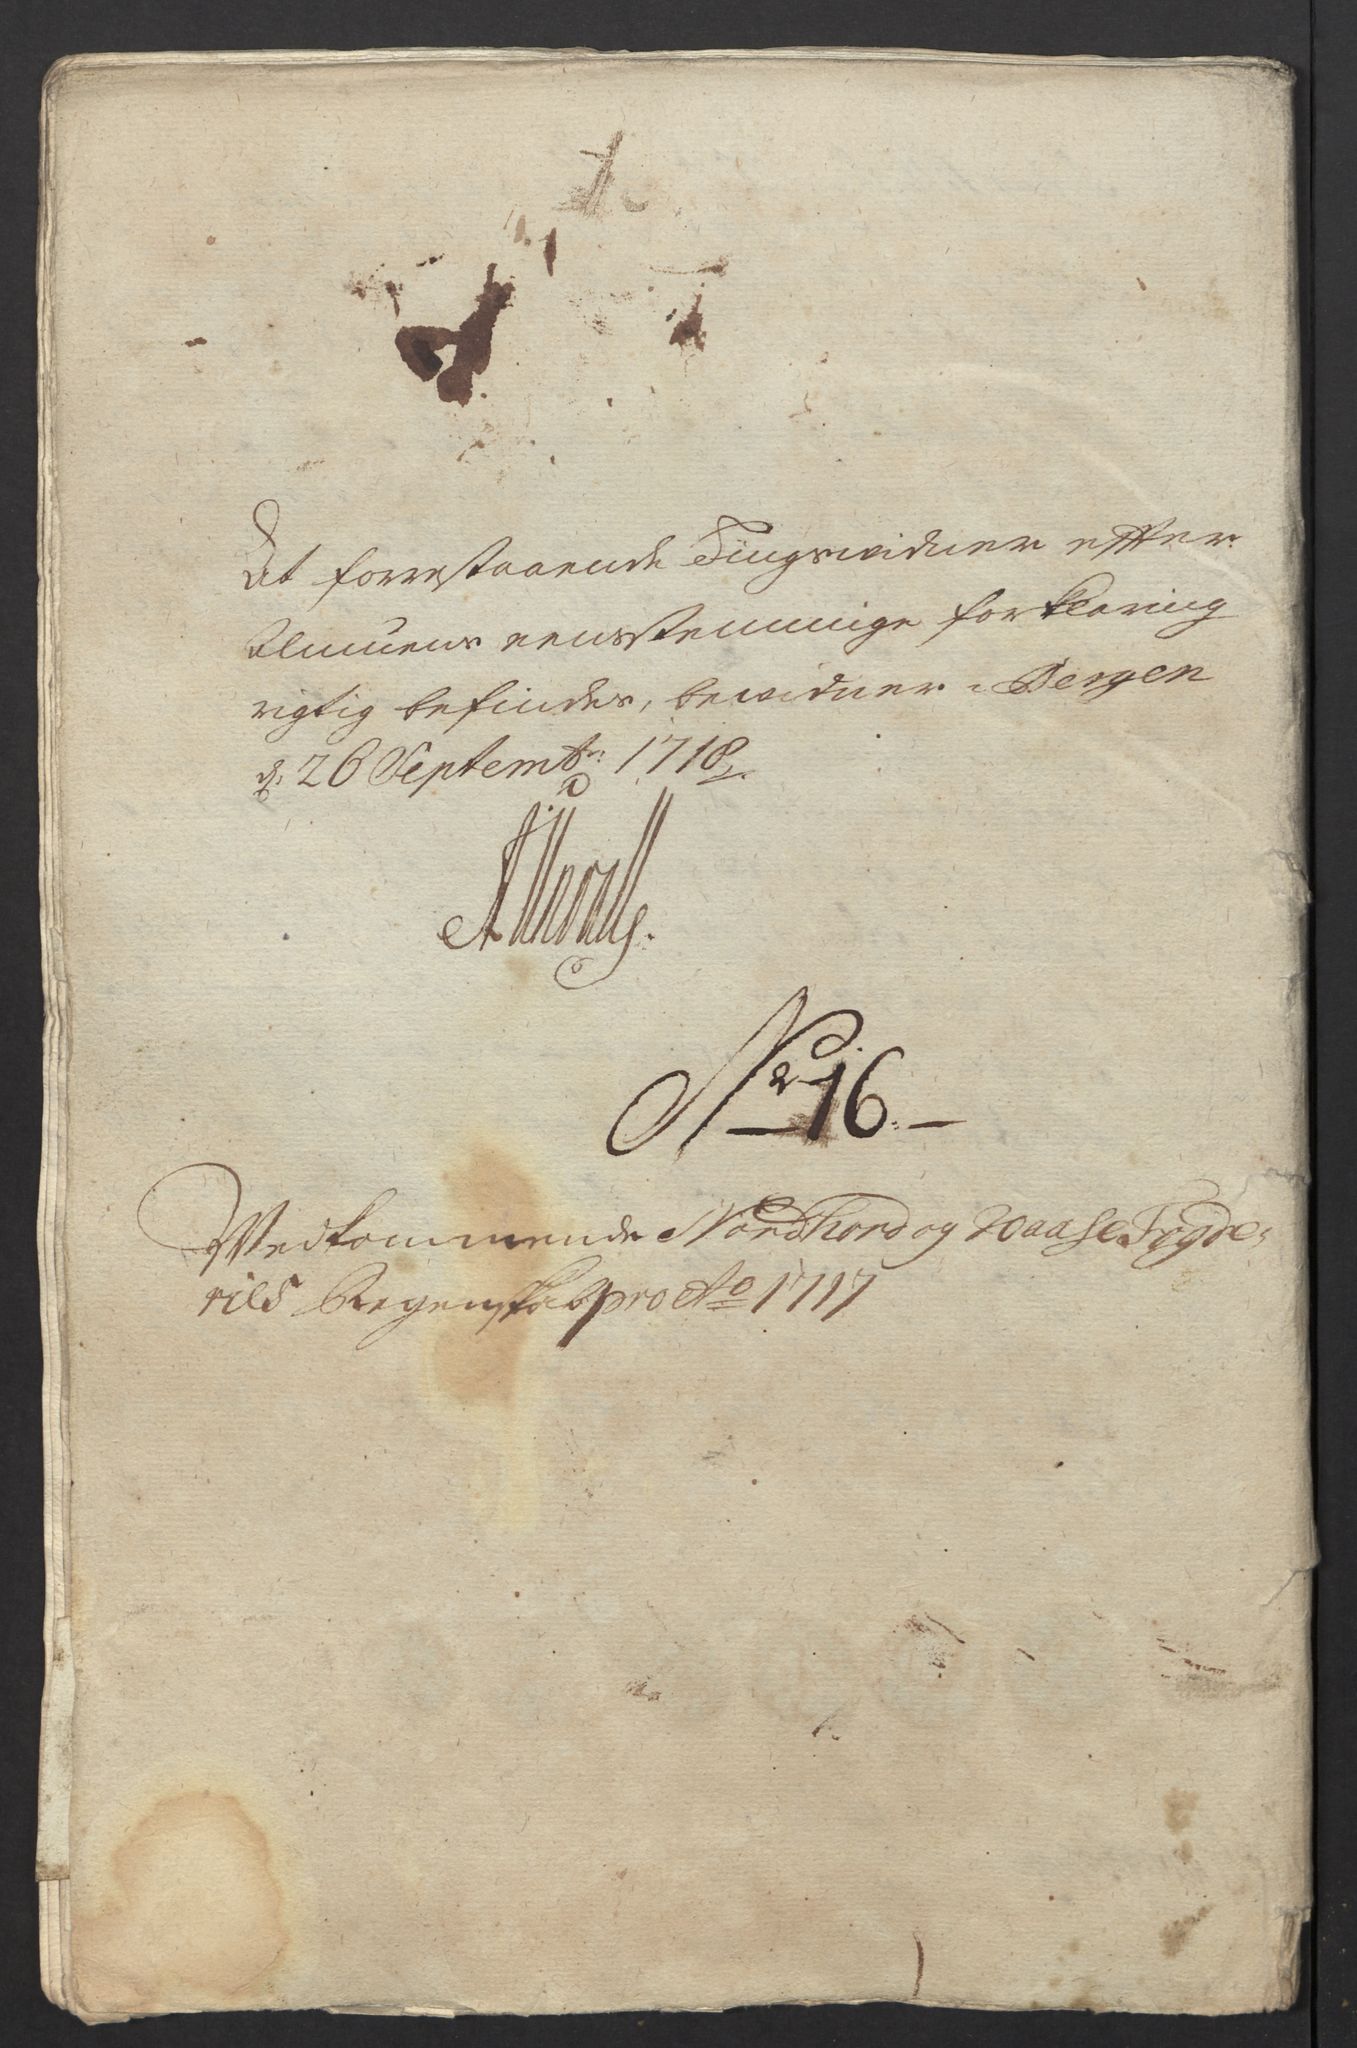 At forrestaaende Tingswidner effter
Almuens eensstemmige forklaring
rigtig befindes, bewidner Bergen
d. 26 Septembr: 1718
No 16.
Wedkommende Nordhord og Waase Fogde-
ries Regenskab pro Ao 1717